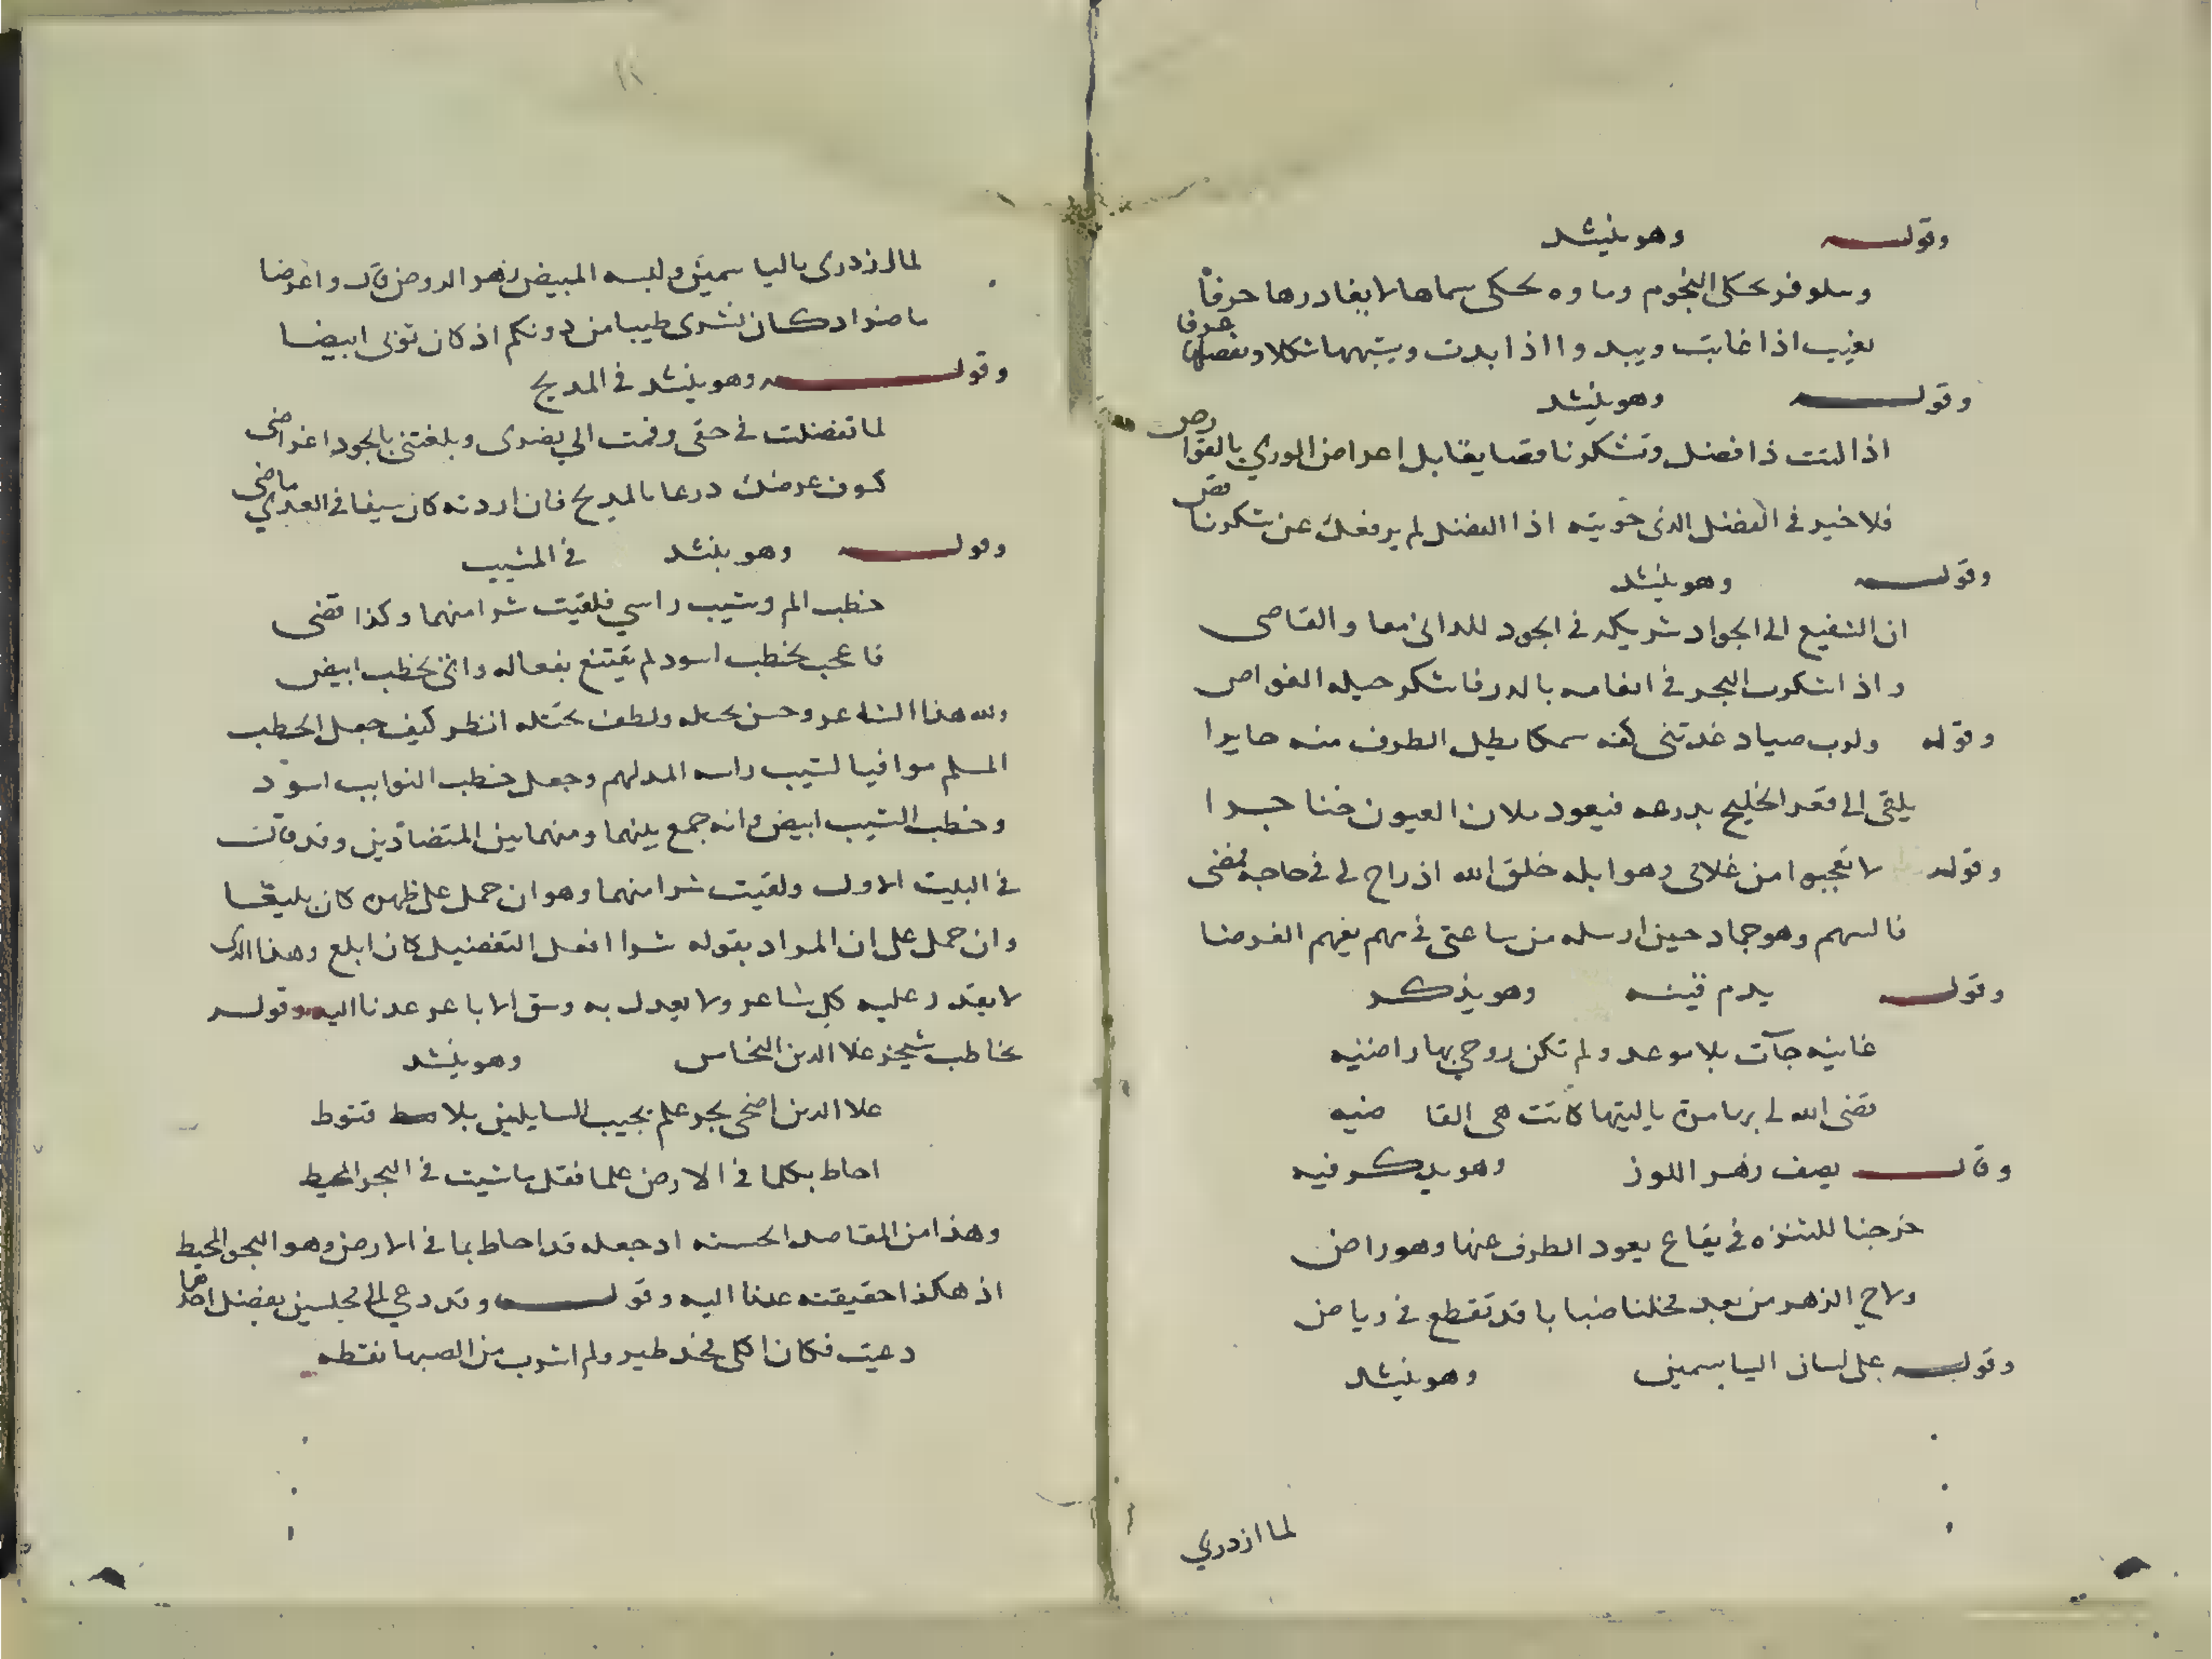 وقوله وهو ينشد
ونيلوفر يحكى النجوم وماوه يحكى سماها لا يغادرها حرفا
يغيب اذا غابت ويبدوا اذا بدت ويشبهها شكلا
وقوله وهو ينشد
اذا كنت ذا فضل وتشكر ناقصا يقابل اعراض الوري بالقوارص
فلا خير في الفضل الذى حويته اذا الفضل لم يرفعك عن شكر ناقص
وقوله وهو ينشد
ان الشفيع الى الجواد شريكه في الجود للدانى معا والقاصى
واذا شكرت البحر في انعامه بالدر فاشكر حيله الغواص
وقوله ولرب صياد غدت في كفه سمكا يطيل الطرف منه حايرا
يلقى الى قعر الخليج بدرعه فيعود ملان العيون خناجرا
وقوله لا تعجبوا من غلامى وهو ابله خلق الله اذ راح لى في حاجة فقضى
فالسهم وهو جماد حين ارسله من ساعتى في مهم يفهم الغرضا
وقوله يذم قينه وهو يذكر
غانيه جآت بلا موعد ولم تكن روحي بها راضيه
قضى الله لى بها مرة ياليتها كانت هى القاضيه
وقال يصف زهر اللوز وهو يذكر فيه
خرجنا للتنزه في بقاع يعود الطرف عنها وهو راض
ولاح الزهر من بعد فخلنا ضبابا قد تقطع في رياض
وقوله على لسان الياسمين وهو ينشد
لما ازدري
لما ازدرى بالياسمين ولبسه المبيض زهر الروض قال واعرضا
ما ضر اد كان نشرى طيبا من دونكم اذ كان ثوبى ابيضا
وقوله وهو ينشد في المديح
لما تفضلت في حقى وقمت الي نصرى وبلغتنى بالجود اغراضى
كسوت عرضك درعا بالمديح فان اردته كان سيفا في العدي ماضى
وقوله وهو ينشد في المشيب
خطب الم وشيب راسي فلقيت شرا منهما وكذا قضى
فاعجب لخطب اسود لم يقتنع بفعاله واتى بخطب ابيض
ولله هذا الشاعر وحسن تحيله ولطف تخيله انظر كيف جعل الخطب
المسلم موافيا لشيب راسه المدلهم وجعل خطب النوايب اسود
وخطب الشيب ابيض وانه جمع بينهما ومنهما بين المتضادين وقد قال
في البيت الاول ولقيت شرا منهما وهو ان حمل على ظهره كان بليغا
وان حمل على ان المراد بقوله شرا افعل التفضيل كان ابلغ وهذا الذى
لا يقدر عليه كل شاعر ولا يعدل به وسق الاباعر عدنا اليه وقوله
يخاطب شيخه علا الدين النحاس وهو ينشد
علا الدين اضحى بحر علم يجيب السايلين بلا قنوط
احاط بكلما في الارض علما فقل ما شيت في البحر المحيط
وهذا من المقاصد الحسنه اد جعله قد احاط بما في الارض وهو البحر المحيط
اذ هكذا حقيقته عدنا اليه وقوله وقد دعي الى مجلسين بفضل احدهما
دعيت فكان اكلى فخد طير ولم اشرب من الصهبا نقطه